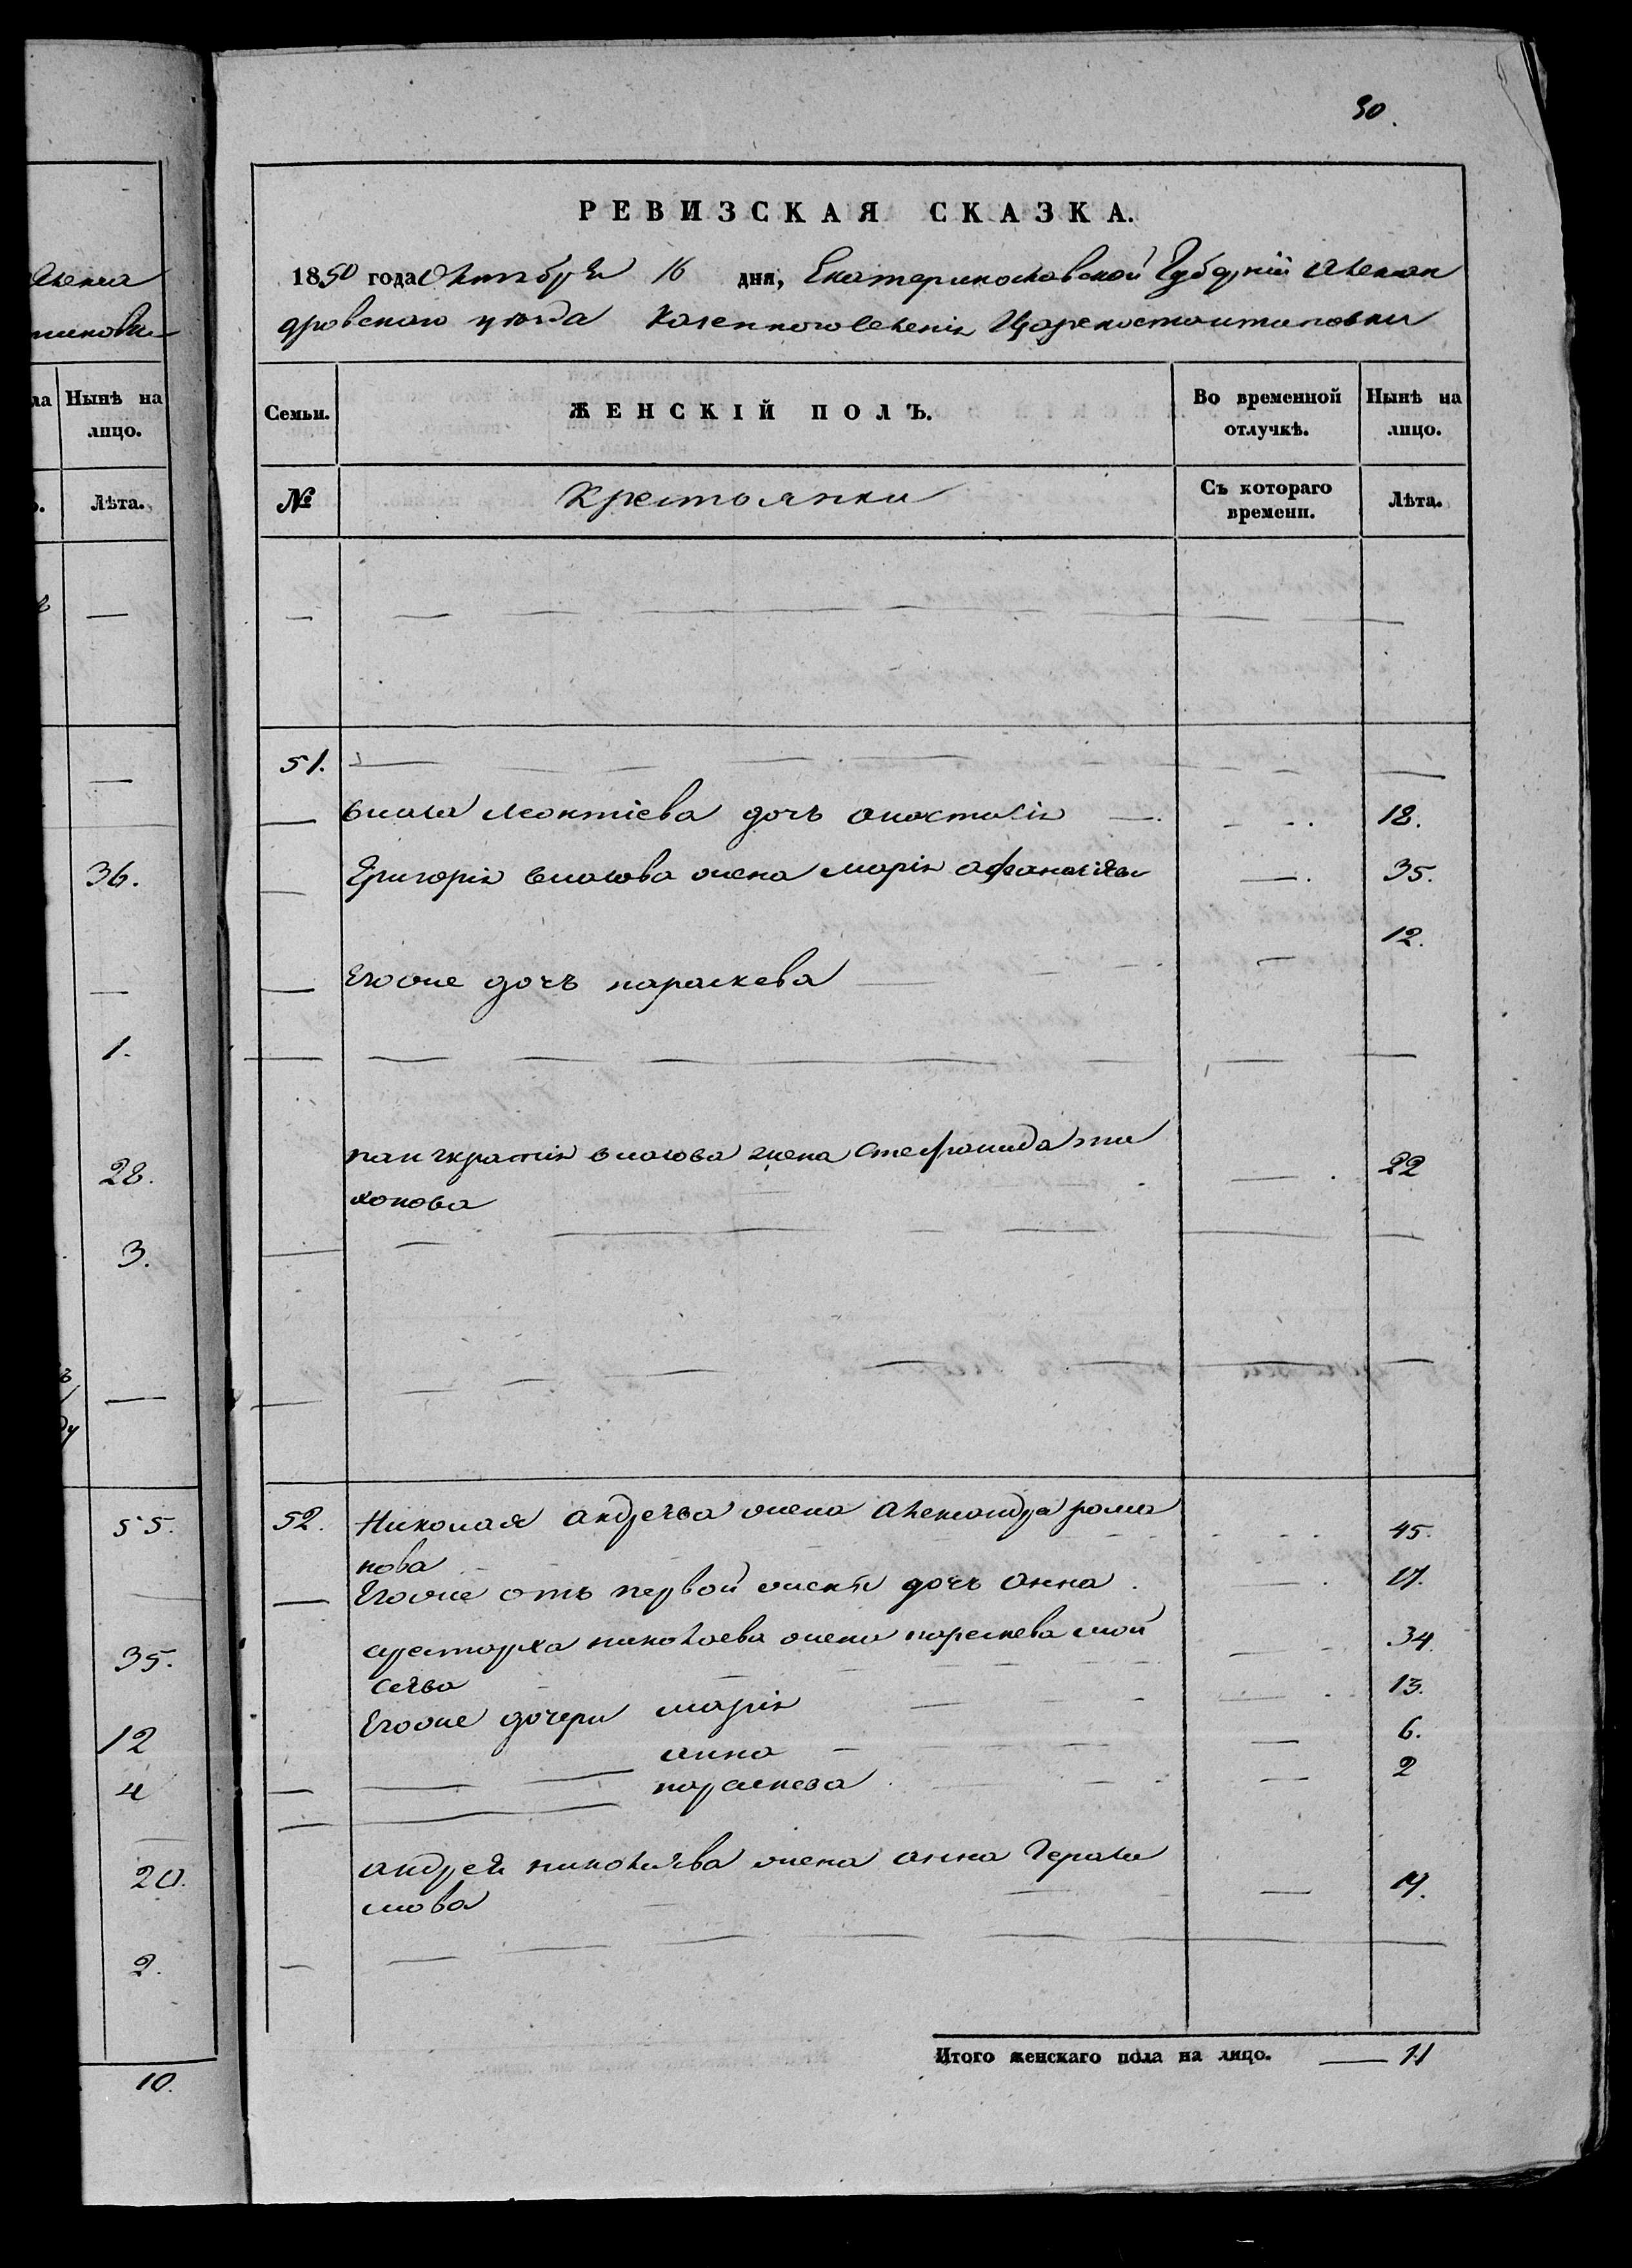 30.
РЕВИЗСКАЯ СКАЗКА.
1850 года Октября 16 дня, Екатеринославской Губерніи Алексан
дровского уѣзда Казенного селенія Цареконстантиновки
Семьи. ЖЕНСКІЙ ПОЛЪ. Во временной отлучкѣ. Нынѣ на лицо.
№ Крестьянки Съ котораго времени. Лѣта.
51.
власа леонтіева дочь анастасія 18.
Григорія власова жена марія афанасіева 35.
12.
Егоже дочь параскева
панкратія власова жена стефанида ти 22
хонова
52. Николая андреева жена александра рома 45.
нова
Егоже отъ первой жены дочь анна 17.
аристарха николаева жена параскева мой 34.
сеева
Егоже дочери марія 13.
анна 6.
параскева 2
андрея николаева жена анна Гераси 19.
мова
Итого женскаго пола на лицо. 11
Нынѣ на лицо.
Лѣта.
36.
1.
28.
3.
55.
35.
12
4
20.
2.
10.